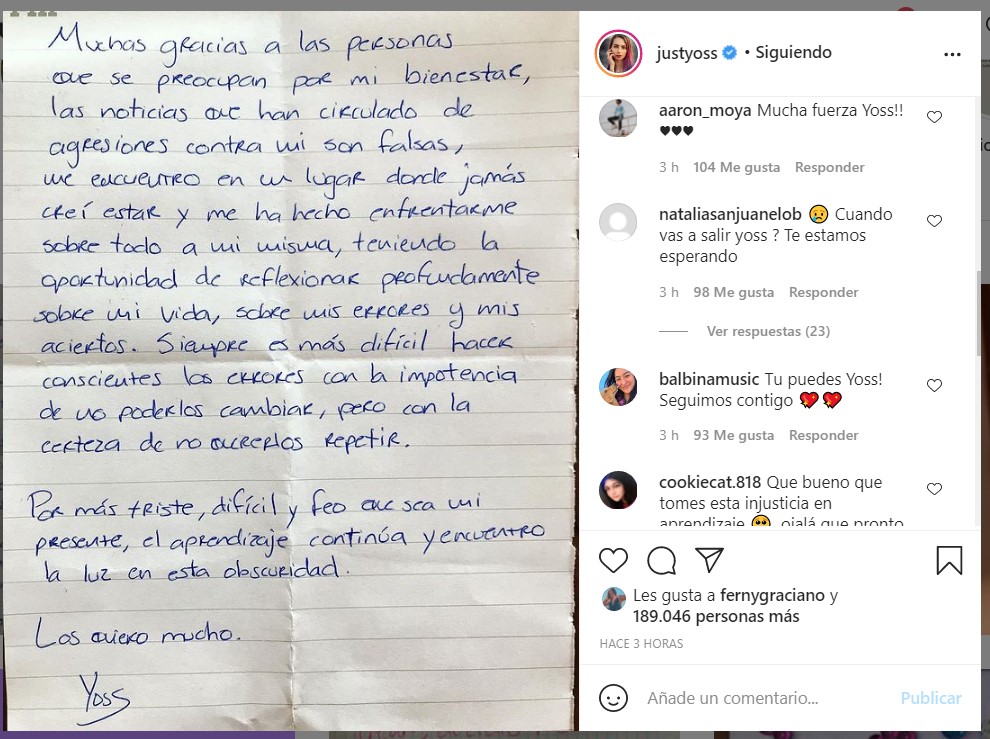 Muchas gracias a las personas
que se preocupan por mi bienestar,
las noticias que han circulado de
agresiones contra mi son falsas,
me encuentro en un lugar donde jamás
creí estar y me ha hecho enfrentarme
sobre todo a mi misma, teniendo la
oportunidad de reflexionar profundamente
sobre mi vida, sobre mis errores y mis
aciertos. Siempre es más difícil hacer
conscientes los errores con la impotencia
de no poderlos cambiar, pero con la
certeza de no quererlos repetir.
Por más triste, difícil y feo que sea mi
presente, el aprendizaje continúa y encuentro
la luz en esta obscuridad.
Los quiero mucho.
Yoss
justyoss • Siguiendo
aaron_moya Mucha fuerza Yoss!!
🖤🖤🖤
3 h 104 Me gusta Responder
nataliasanjuanelob 😢 Cuando
vas a salir yoss ? Te estamos
esperando
3 h 98 Me gusta Responder
Ver respuestas (23)
balbinamusic Tu puedes Yoss!
Seguimos contigo 💖💖
3 h 93 Me gusta Responder
cookiecat.818 Que bueno que
tomes esta injusticia en
aprendizaje 🥺 ojalá que pronto
Les gusta a fernygraciano y
189.046 personas más
HACE 3 HORAS
Añade un comentario... Publicar